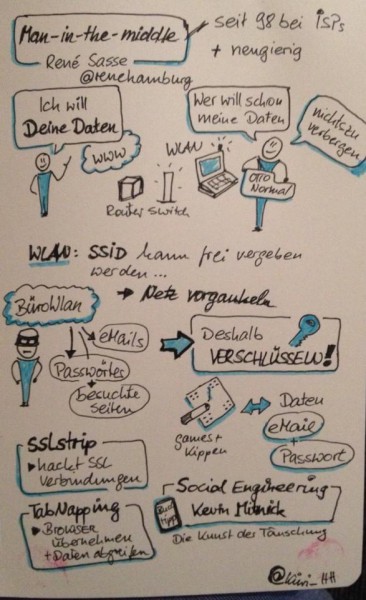 Man-in-the-middle
seit 98 bei ISPs
+ neugierig
René Sasse
@renehamburg
Ich will
Deine Daten
Wer will schon
meine Daten
nichts zu
verbergen
WWW
WLAN
OTTO
Normal
Router Switch
WLAN: SSID kann frei vergeben
werden...
BüroWlan
→ Netz vorgaukeln
eMails
Passwörter
besuchte
Seiten
Deshalb
VERSCHLÜSSELN!
games +
Kippen
Daten
eMail
+
Passwort
SSLstrip
hackt SSL
Verbindungen
TabNapping
Browser
übernehmen
+ Daten abgreifen
Social Engineering
Kevin Mitnick
Buch
Tipp
Die Kunst der Täuschung